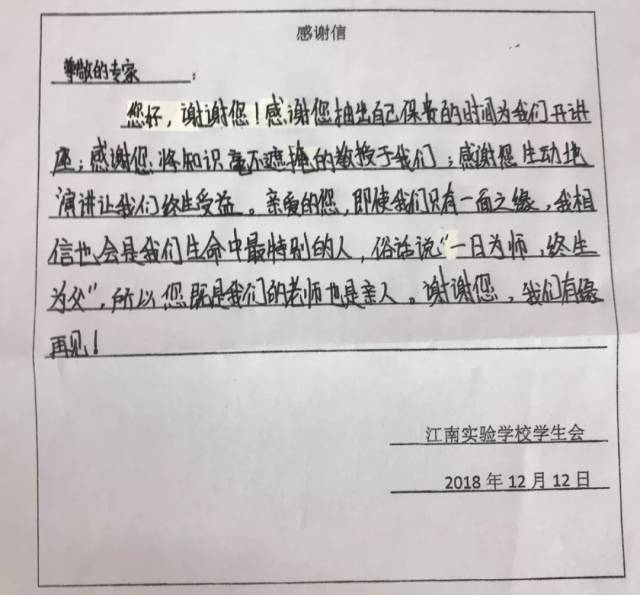 感谢信
尊敬的专家：
您好，谢谢您！感谢您抽出自己保贵的时间为我们开讲
座；感谢您将知识毫不遮掩的教授于我们；感谢您生动地
演讲让我们终生受益。亲爱的您，即使我们只有一面之缘，我相
信也会是我们生命中最特别的人，俗话说“一日为师，终生
为父”，所以您既是我们的老师也是亲人。谢谢您，我们有缘
再见！
江南实验学校学生会
2018年12月12日